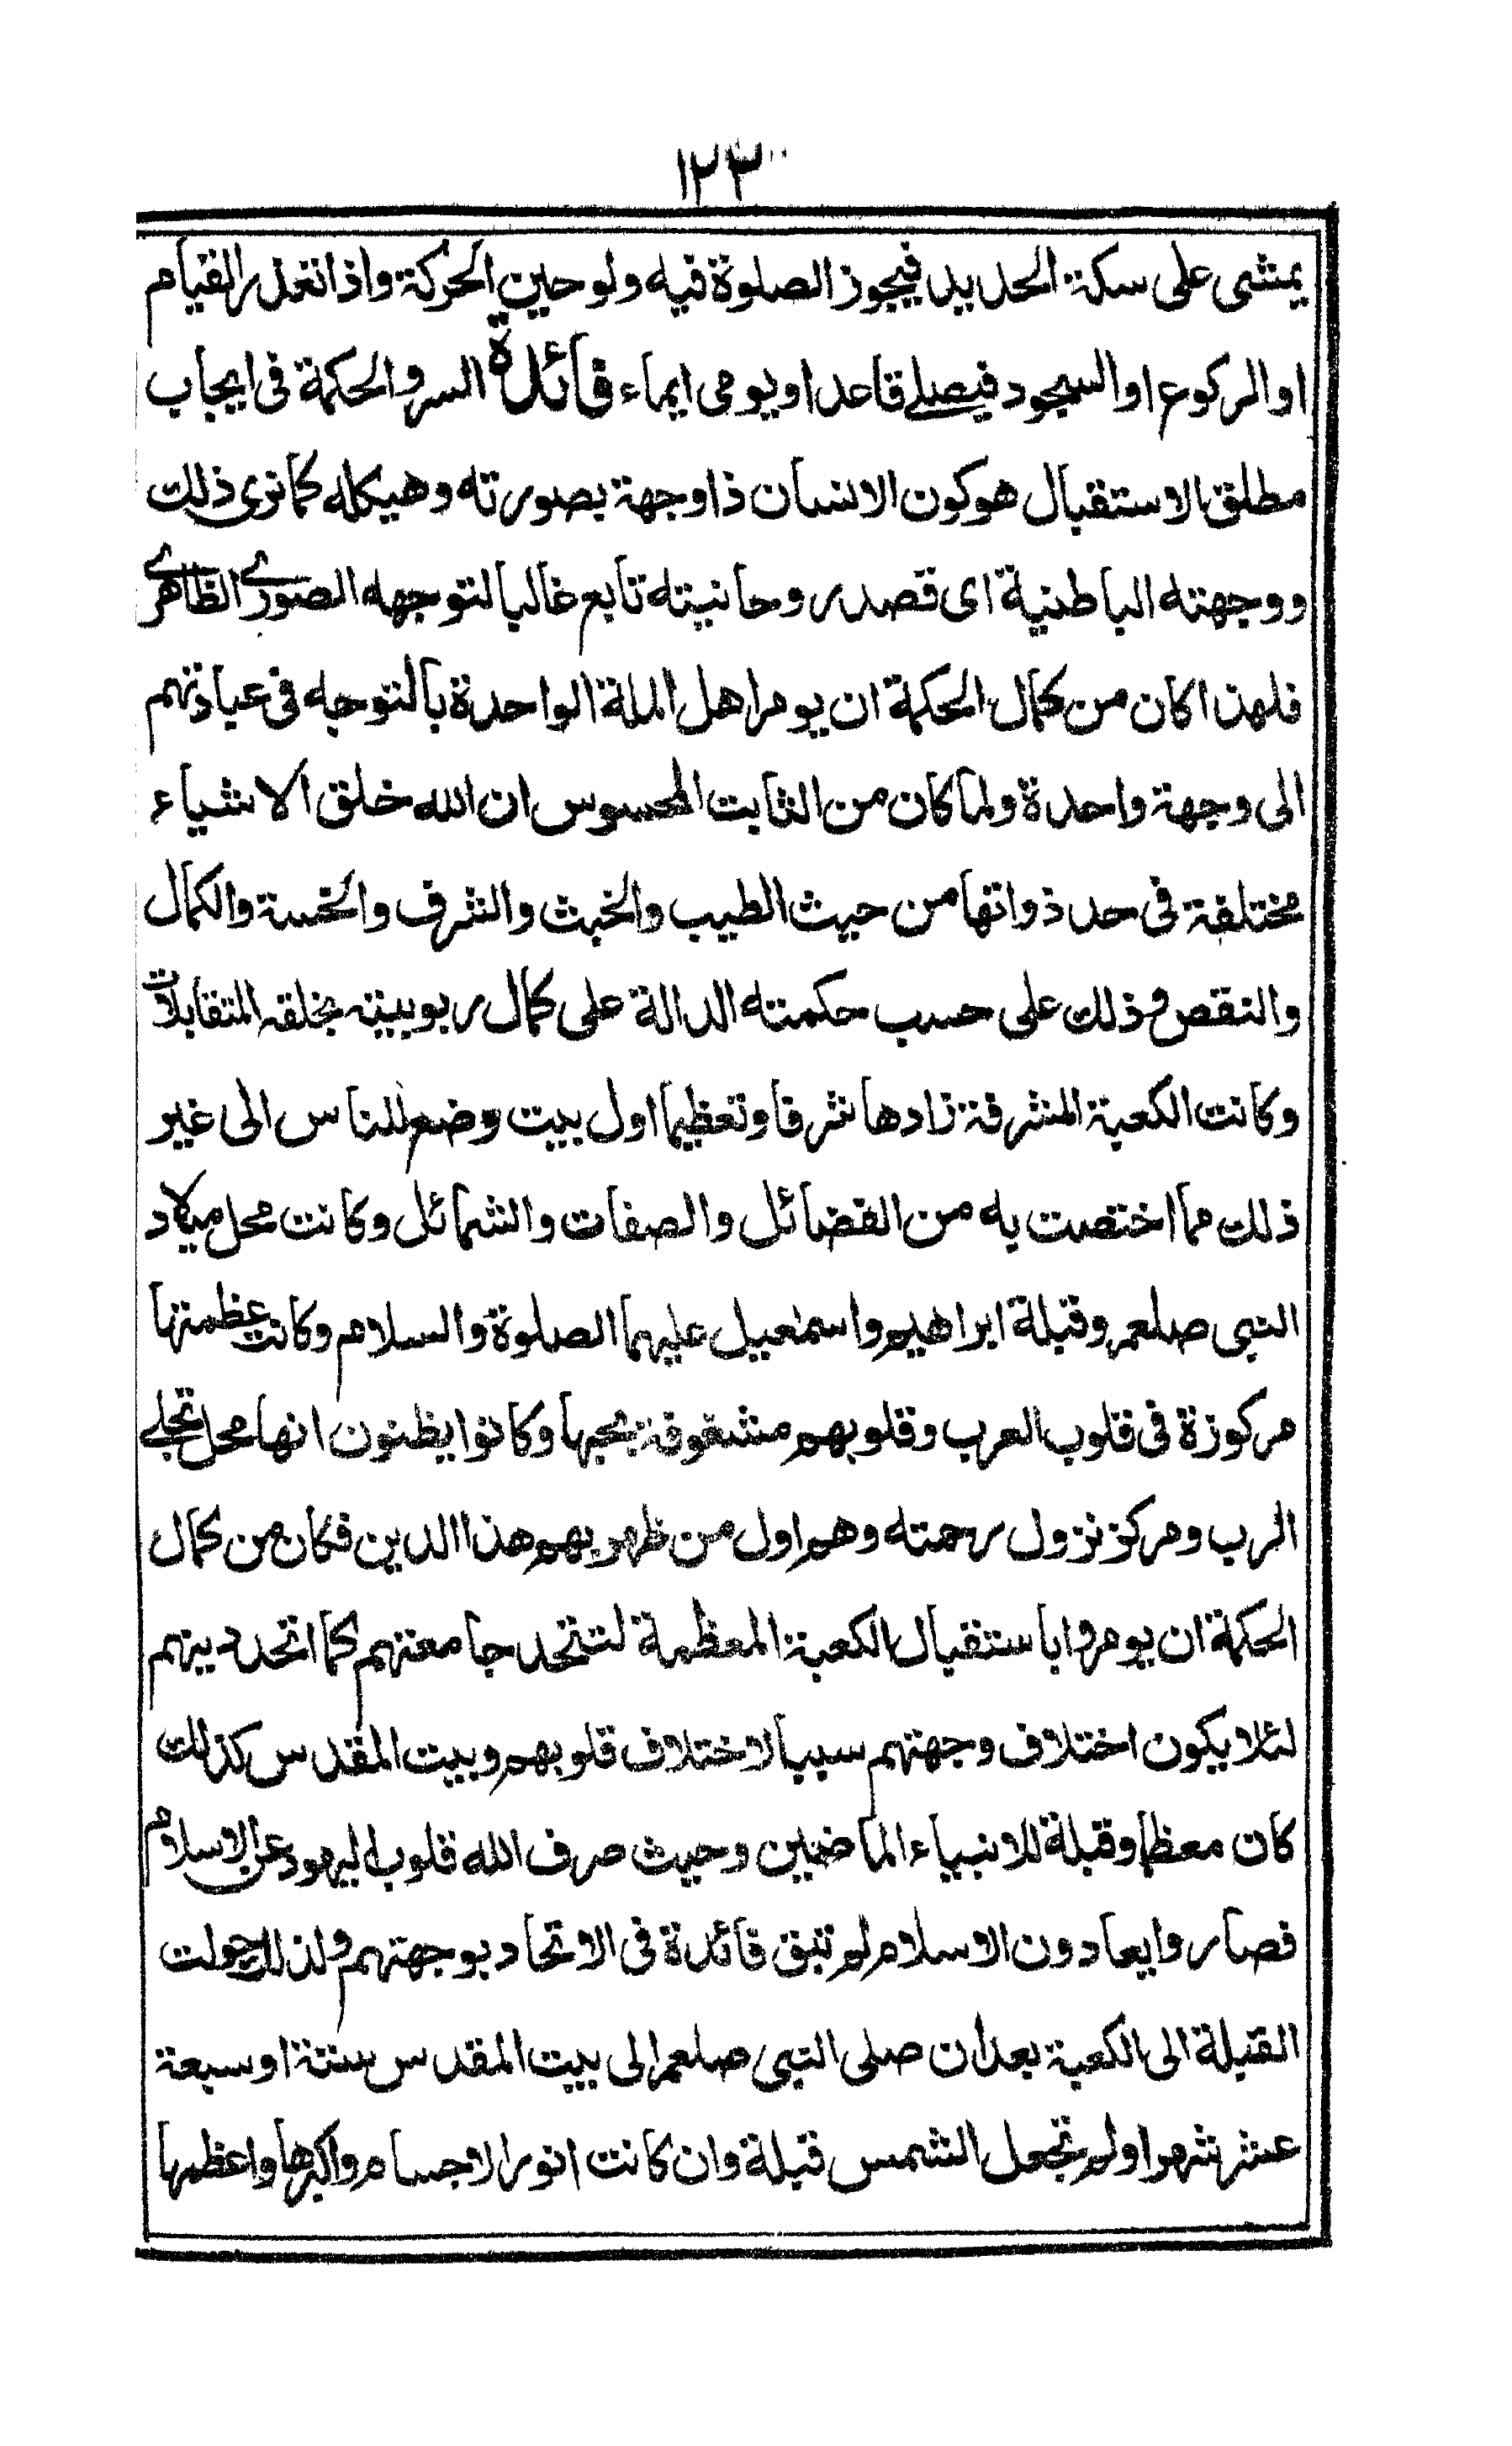 ١٢٣
يمشى على سكة الحديد فيجوز الصلوة فيه ولو حين الحركة واذا تعذر القيام
او الركوع او السجود فيصلے قاعدا او يومى ايماء فائدة السر والحكمة فى ايجاب
مطلق الاستقبال هو كون الانسان ذا وجهة بصورته وهيكله كما نرى ذلك
ووجهته الباطنية اى قصد روحانيته تابع غالبا لتوجهه الصورے الظاهرے
فلهذا كان من كمال الحكمة ان يومر اهل الملة الواحدة بالتوجه فى عبادتهم
الى وجهة واحدة ولما كان من الثابت المحسوس ان الله خلق الاشياء
مختلفة فى حد ذواتها من حيث الطيب والخبث والشرف والخسة والكمال
والنقص وذلك على حسب حكمته الدالة على كمال ربوبيته بخلقه المتقابلات
وكانت الكعبة المشرفة زادها شرفا وتعظيما اول بيت وضع للناس الى غير
ذلك مما اختصت به من الفضائل والصفات والشمائل وكانت محل ميلاد
النبى صلعم وقبلة ابراهيم واسمٰعيل عليهما الصلوة والسلام وكانت عظمتها
مركوزة فى قلوب العرب وقلوبهم مشغوفة بحبها وكانوا يظنون انها محل تجلے
الرب ومركز نزول رحمته وهم اول من ظهر بهم هذا الدين فكان من كمال
الحكمة ان يومروا باستقبال الكعبة المعظمة لتتحد جامعتهم كما اتحد دينهم
لئلا يكون اختلاف وجهتهم سببا لاختلاف قلوبهم وبيت المقدس كذلك
كان معظما وقبلة للانبياء الماضين وحيث صرف الله قلوب اليهود عن الاسلام
فصاروا يعادون الاسلام لم تبق فائدة فى الاتحاد بوجهتهم ولذلك حولت
القبلة الى الكعبة بعد ان صلى النبى صلعم الى بيت المقدس ستة او سبعة
عشر شهرا ولم تجعل الشمس قبلة وان كانت انور الاجسام واكبرها واعظمها